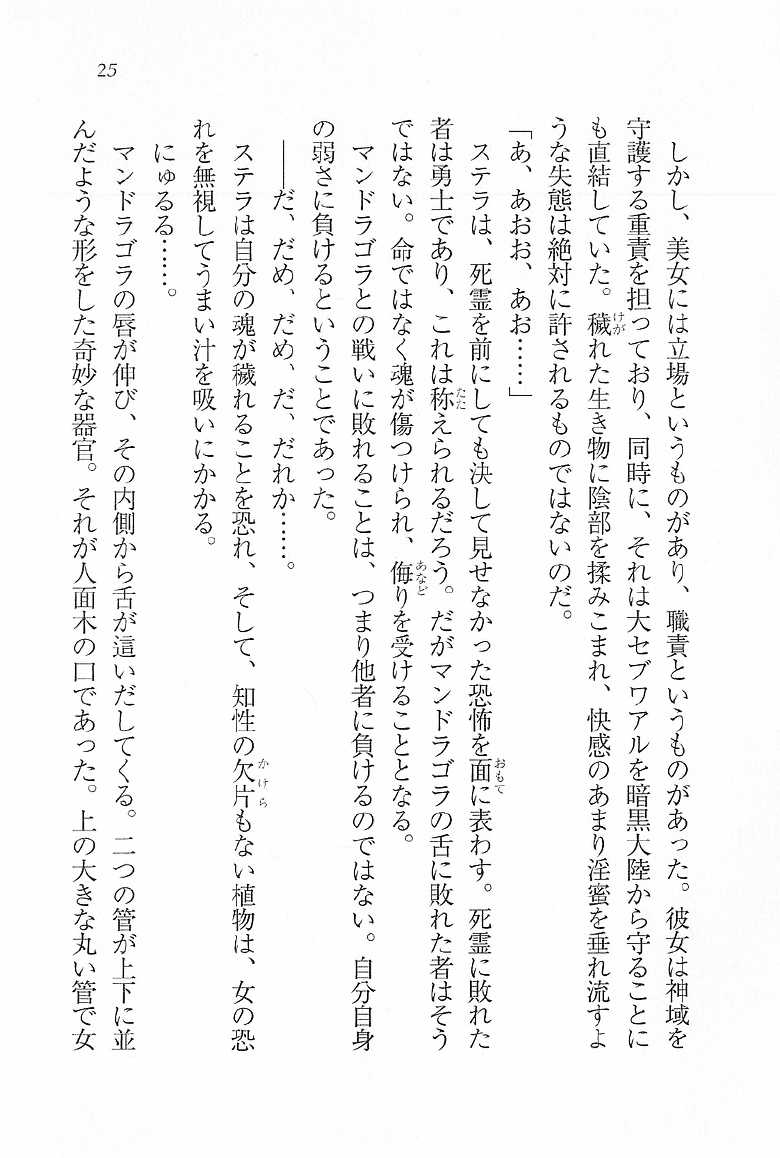 25
しかし、美女には立場というものがあり、職責というものがあった。彼女は神域を
守護する重責を担っており、同時に、それは大セブワアルを暗黒大陸から守ることに
も直結していた。穢れた生き物に陰部を揉みこまれ、快感のあまり淫蜜を垂れ流すよ
うな失態は絶対に許されるものではないのだ。
「あ、あおお、あお……」
ステラは、死霊を前にしても決して見せなかった恐怖を面に表わす。死霊に敗れた
者は勇士であり、これは称えられるだろう。だがマンドラゴラの舌に敗れた者はそう
ではない。命ではなく魂が傷つけられ、侮りを受けることとなる。
マンドラゴラとの戦いに敗れることは、つまり他者に負けるのではない。自分自身
の弱さに負けるということであった。
――だ、だめ、だめ、だ、だれか……。
ステラは自分の魂が穢れることを恐れ、そして、知性の欠片もない植物は、女の恐
れを無視してうまい汁を吸いにかかる。
にゅるる……。
マンドラゴラの唇が伸び、その内側から舌が這いだしてくる。二つの管が上下に並
んだような形をした奇妙な器官。それが人面木の口であった。上の大きな丸い管で女